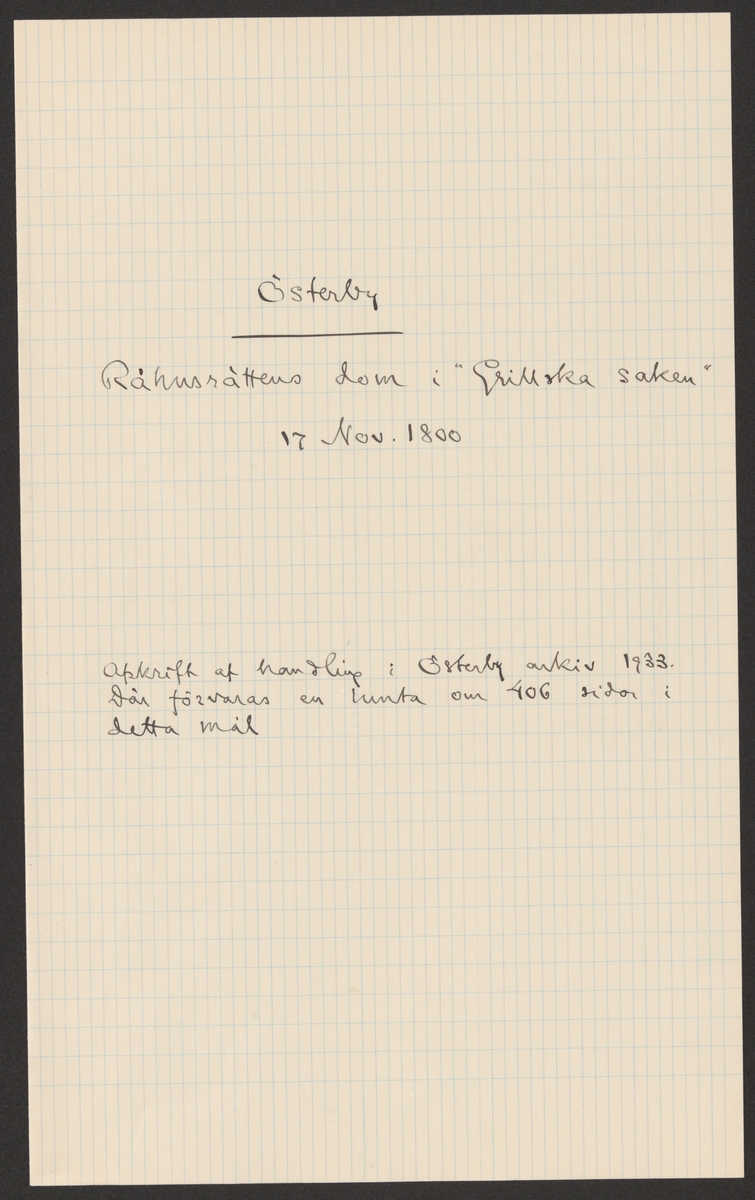 Österby
Rådhusrättens dom i "Grillska saken"
17 Nov. 1800
Afskrift af handling i Österby arkiv 1933.
Där förvaras en lunta om 406 sidor i
detta mål